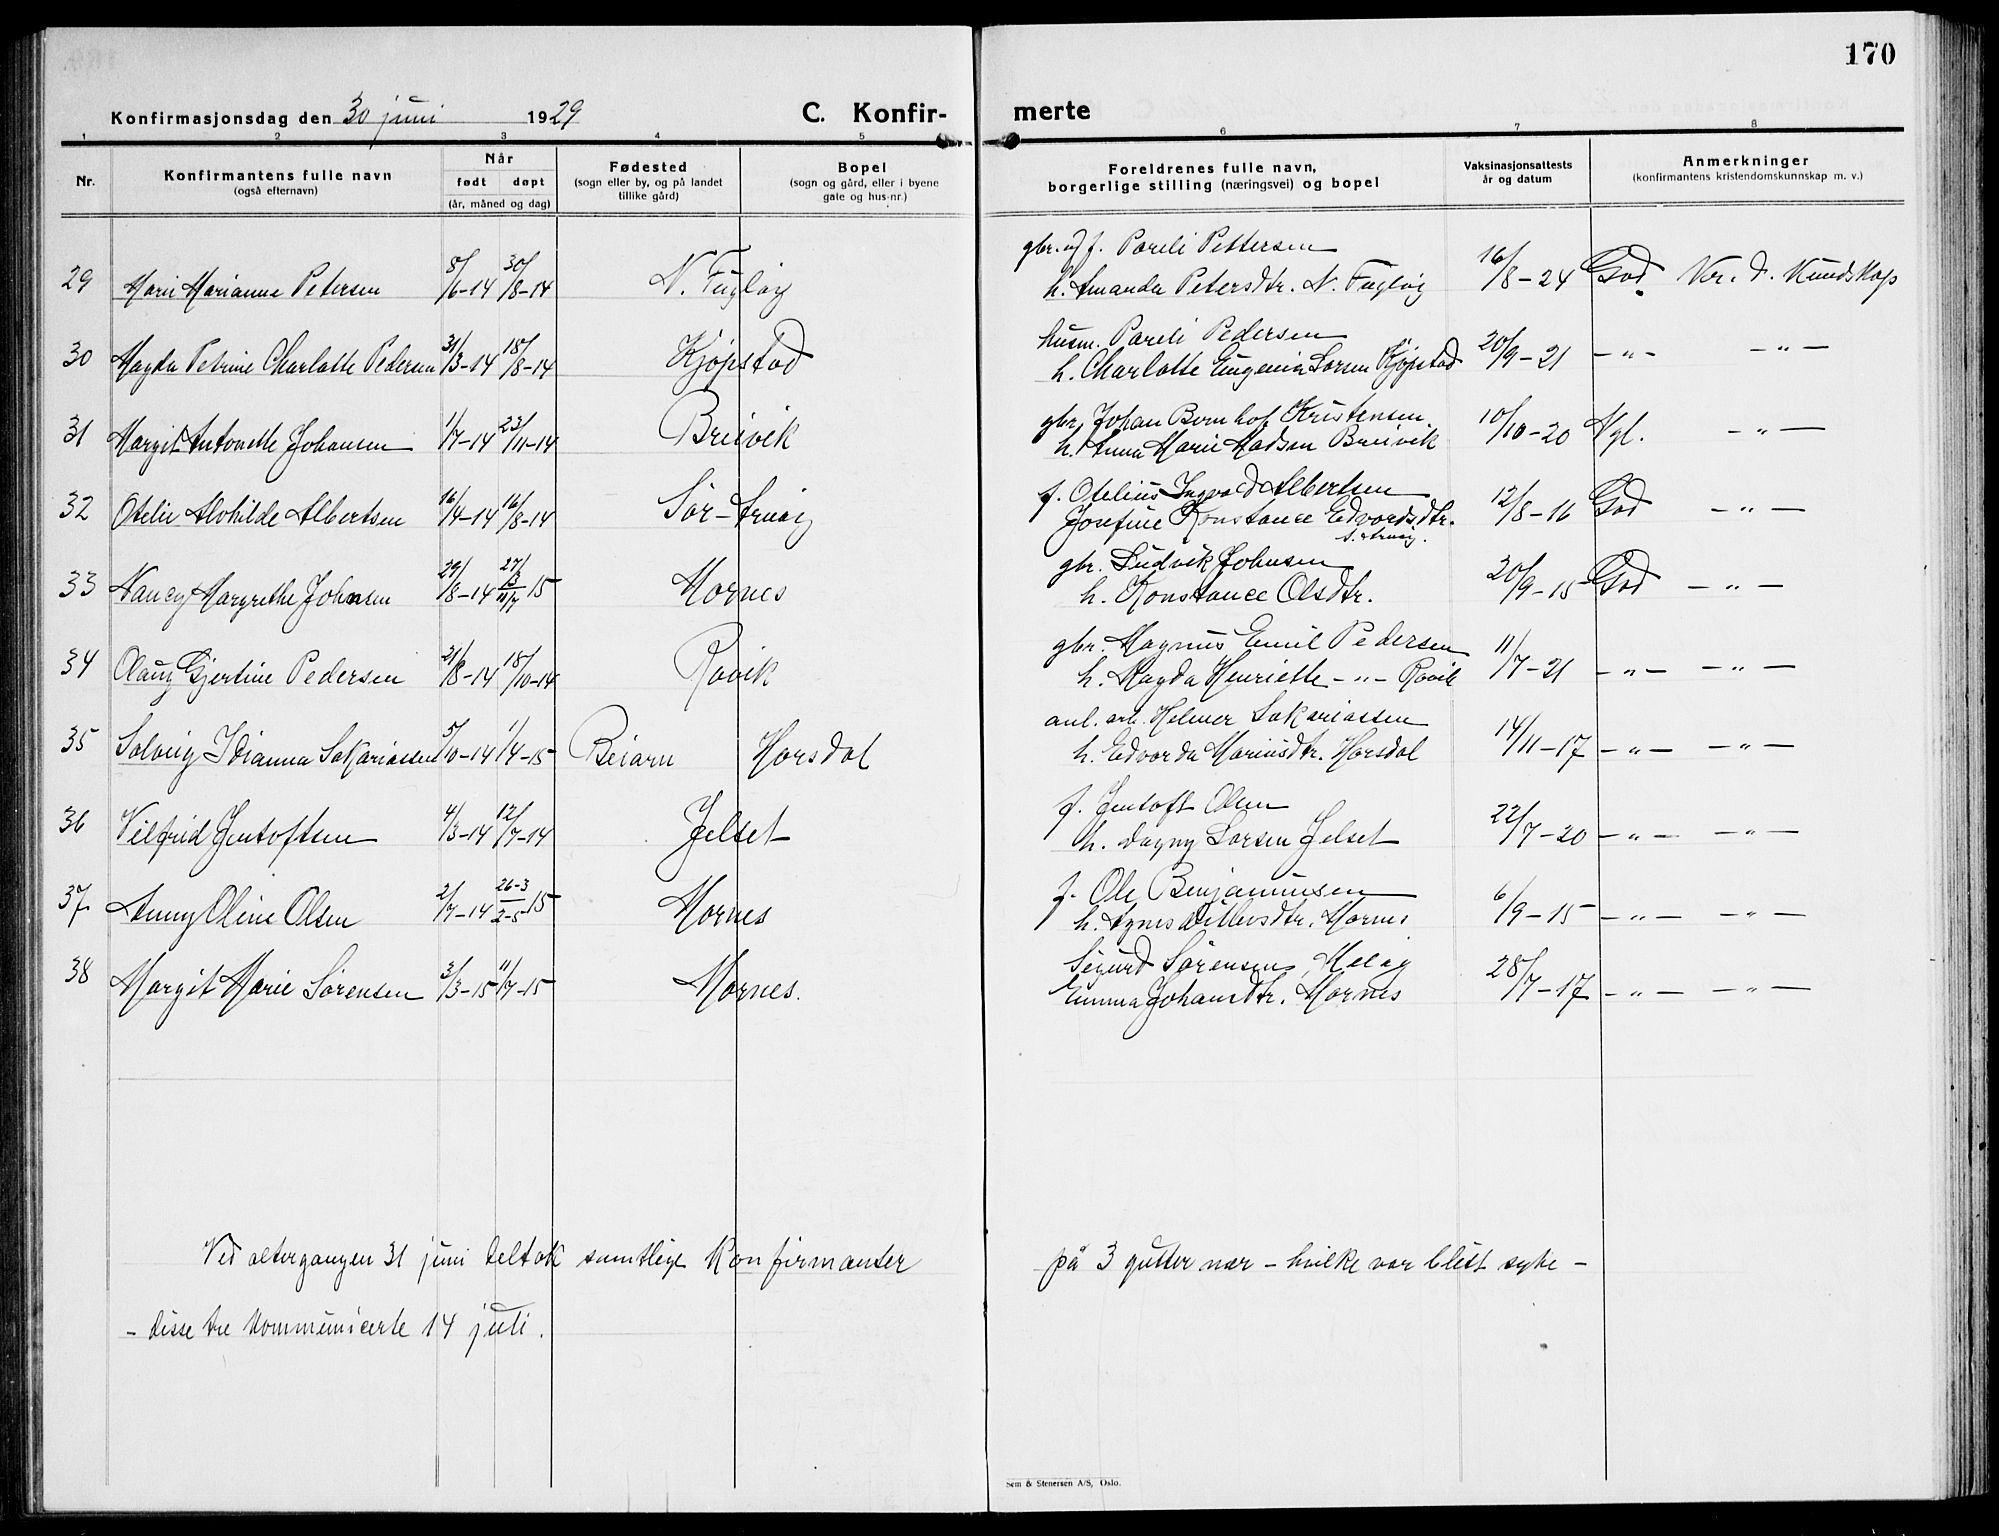 170
Konfirmasjonsdag den 30 juni 1929 C. Konfir- merte
1 2 3 4 5 6 7 8
Nr.
Konfirmantens fulle navn
(også efternavn)
Når
født døpt
(år, måned og dag)
Fødested
(sogn eller by, og på landet
tillike gård)
Bopel
(sogn og gård, eller i byene
gate og hus-nr.)
Foreldrenes fulle navn,
borgerlige stilling (næringsvei) og bopel
Vaksinasjonsattests
år og datum
Anmerkninger
(konfirmantens kristendomskunnskap m. v.)
gbr. og f. Pareli Pettersen
29 Marie Marianne Petersen 5/6-14 30/8-14 N. Fugløy h. Amanda Petersdtr. N. Fugløy 16/8-24 God Ver. d. Kundskap
husm. Pareli Pedersen
30 Magda Petrine Charlotte Pedersen 31/3-14 15/8-14 Kjøpstad h. Charlotte Eugenia Larsen Kjøpstad 20/9-21 -"- -"-
gbr. Johan Bernhof Kristensen
31 Margit Antonette Johansen 1/7-14 23/11-14 Breivik h. Anna Marie Madsen Breivik 10/10-20 Mgl. -"-
f. Otelius Ingvald Albertsen
32 Otelie Alvhilde Albertsen 16/4-14 16/8-14 Sør-Arnøy Josefine Konstance Edvardsdtr. 12/8-16 God -"-
S. Arnøy.
gbr. Ludvik Johnsen
33 Nancy Margrethe Johnsen 29/8-14 27/3 11/7 15 Mornes h. Konstance Olsdtr. 20/9-15 God -"-
gbr. Magnus Emil Pedersen
34 Olaug Gjertine Pedersen 21/8-14 18/10-14 Røvik h. Magda Henriette -"- Røvik 11/7-21 -"- -"-
anl. arb. Helmer Sakariassen
35 Solveig Idianna Sakariassen 5/10-14 1/4-15 Beiarn Horsdal h. Edvarda Mariusdtr. Horsdal 14/11-17 -"- -"-
f. Jentoft Olsen
36 Vilfrid Jentoftsen 4/3-14 12/7-14 Jelset h. Dagny Larsen Jelset 22/7-20 -"- -"-
f. Ole Benjaminsen
37 Anny Oline Olsen 2/7-14 26-3 2-5 15 Mornes h. Agnes Mornes 6/9-15 -"- -"-
Sigurd Sørensen, Meløy
38 Margit Marie Sørensen 3/3-15 11/7-15 Mornes. Emma Johansdtr. Mornes 28/7-17 -"- -"-
Ved altergangen 31 juni deltok samtlige konfirmanter på 3 gutter nær - hvilke var blitt syke -
- disse tre kommunicerte 14 juli.
Sem & Stenersen A/S, Oslo.